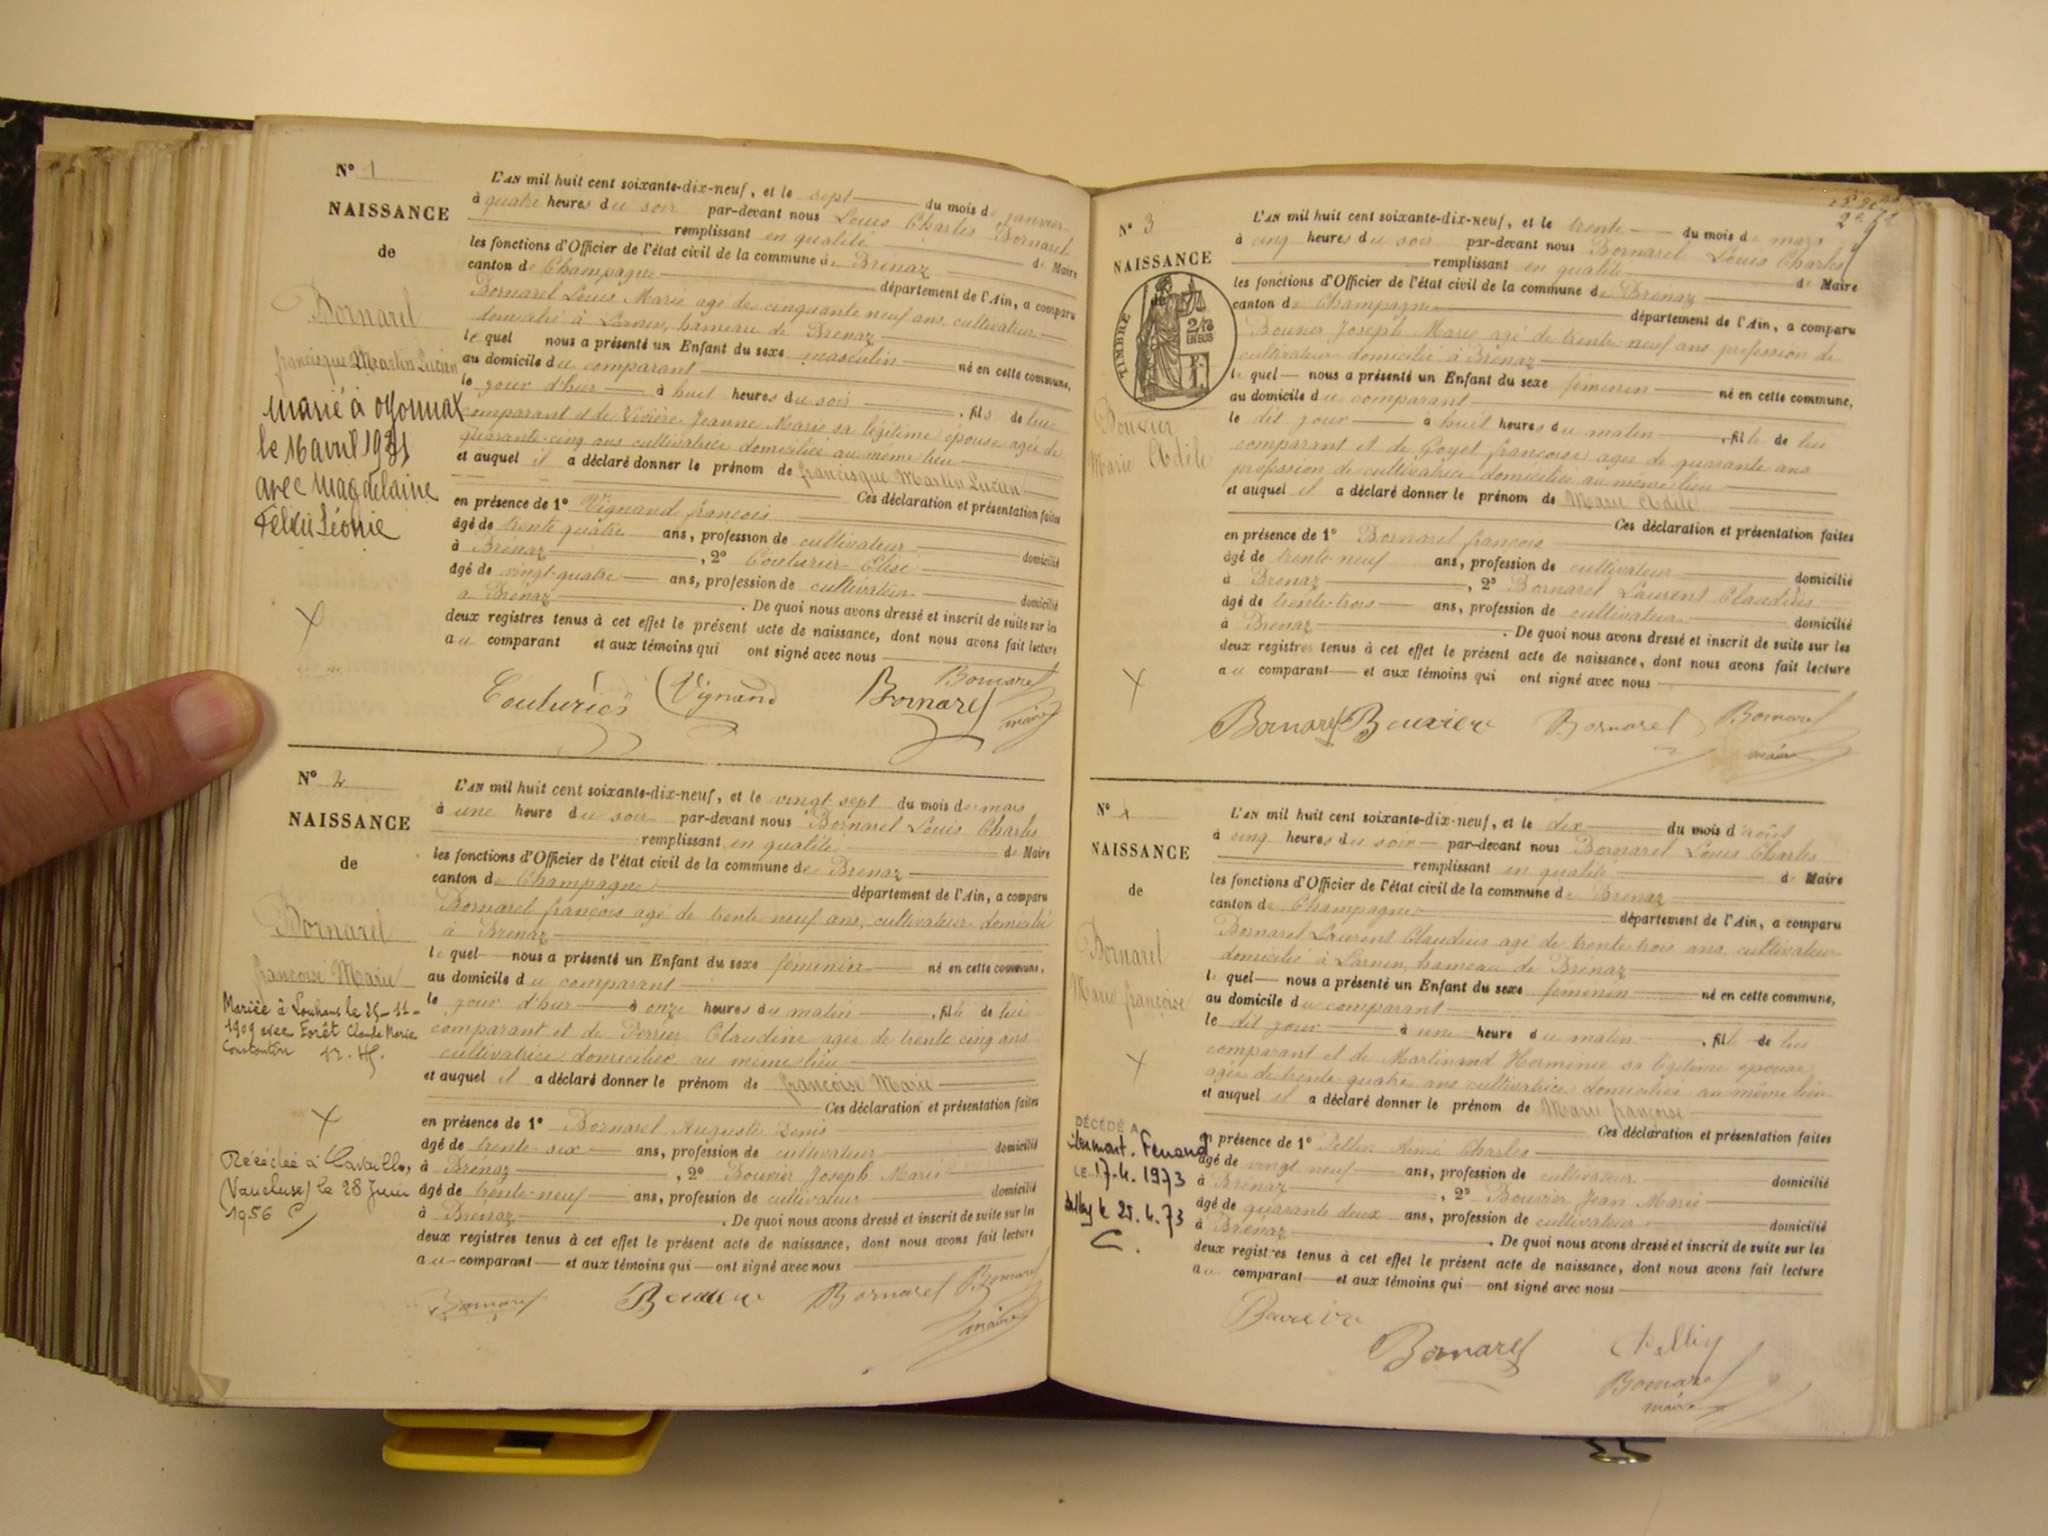 N° 1
NAISSANCE
de
Bornarel
francisque Martin Lucien
marié à oyonnax
le 16 avril 1931
avec Magdelaine
félxii Léonie
L'AN mil huit cent soixante-dix-neuf, et le sept du mois de janvier
à quatre heures du soir par-devant nous Louis Charles Bornarel
remplissant en qualité de Maire
les fonctions d'Officier de l'état civil de la commune de Brénaz
canton de Champagne département de l'Ain, a comparu
Bornarel Louis Marie agé de cinquante neuf ans, cultivateur
domicilié à Larnin, hameau de Brénaz
le quel nous a présenté un Enfant du sexe masculin
au domicile du comparant né en cette commune,
le jour d'hier à huit heures du soir , fils de lui
comparant et de Vivière Jeanne Marie sa légitime épouse agée de
quarante-cinq ans cultivatrice domiciliée au même lieu
et auquel il a déclaré donner le prénom de francisque Martin Lucien
Ces déclaration et présentation faites
en présence de 1° Vignand françois
âgé de trente quatre ans, profession de cultivateur domicilié
à Brénaz , 2° Couturier Elise
âgé de vingt-quatre ans, profession de cultivateur domicilié
à Brénaz . De quoi nous avons dressé et inscrit de suite sur les
deux registres tenus à cet effet le présent acte de naissance, dont nous avons fait lecture
au comparant et aux témoins qui ont signé avec nous
Couturier Vignand Bornarel Bornarel
maire
N° 2
NAISSANCE
de
Bornarel
françoise Marie
Mariée à Louhans le 25-11-
1909 avec Forêt Claude Marie
Constantin
Décédée à Cavaillon,
(Vaucluse) le 28 Juin
1956
L'AN mil huit cent soixante-dix-neuf, et le vingt-sept du mois de mars
à une heure du soir par-devant nous Bornarel Louis Charles
remplissant en qualité de Maire
les fonctions d'Officier de l'état civil de la commune de Brénaz
canton de Champagne département de l'Ain, a comparu
Bornarel françois agé de trente neuf ans, cultivateur domicilié
à Brénaz
le quel nous a présenté un Enfant du sexe féminin né en cette commune,
au domicile du comparant
le jour d'hier à onze heures du matin , fille de lui
comparant et de Perrier Claudine agée de trente cinq ans
cultivatrice domiciliée au même lieu
et auquel il a déclaré donner le prénom de françoise Marie
Ces déclaration et présentation faites
en présence de 1° Bornarel Auguste Denis
âgé de trente-six ans, profession de cultivateur domicilié
à Brénaz , 2° Bouvier Joseph Marie
âgé de trente-neuf ans, profession de cultivateur domicilié
à Brénaz . De quoi nous avons dressé et inscrit de suite sur les
deux registres tenus à cet effet le présent acte de naissance, dont nous avons fait lecture
au comparant et aux témoins qui ont signé avec nous
Bornarel Bouvier Bornarel Bornarel
maire
N° 3
NAISSANCE
TIMBRE
Bouvier
Marie Adèle
L'AN mil huit cent soixante-dix-neuf, et le trente du mois de mars
à cinq heures du soir par-devant nous Bornarel Louis Charles
remplissant en qualité de Maire
les fonctions d'Officier de l'état civil de la commune de Brénaz
canton de Champagne département de l'Ain, a comparu
Bouvier Joseph Marie agé de trente neuf ans profession de
cultivateur domicilié à Brénaz
le quel nous a présenté un Enfant du sexe féminin né en cette commune,
au domicile du comparant
le dit jour à huit heures du matin , fille de lui
comparant et de Goyet françoise agée de quarante ans
profession de cultivatrice domiciliée au même lieu
et auquel il a déclaré donner le prénom de Marie Adèle
Ces déclaration et présentation faites
en présence de 1° Bornarel françois
âgé de trente neuf ans, profession de cultivateur domicilié
à Brénaz , 2° Bornarel Laurent Claudius
âgé de trente-trois ans, profession de cultivateur domicilié
à Brénaz . De quoi nous avons dressé et inscrit de suite sur les
deux registres tenus à cet effet le présent acte de naissance, dont nous avons fait lecture
au comparant et aux témoins qui ont signé avec nous
Bornarel Bouvier Bornarel Bornarel
maire
N° 4
NAISSANCE
de
Bornarel
Marie françoise
DÉCÉDÉ A
LE 17.4.1973
le 25.4.73
L'AN mil huit cent soixante-dix-neuf, et le dix du mois d'août
à cinq heures du soir par-devant nous Bornarel Louis Charles
remplissant en qualité de Maire
les fonctions d'Officier de l'état civil de la commune de Brénaz
canton de Champagne département de l'Ain, a comparu
Bornarel Laurent Claudius agé de trente trois ans, cultivateur
domicilié à Larnin, hameau de Brénaz
le quel nous a présenté un Enfant du sexe féminin né en cette commune,
au domicile du comparant
le dit jour à une heure du matin , fille de lui
comparant et de Martinand Herminie sa légitime épouse
agée de trente quatre ans cultivatrice domiciliée au même lieu
et auquel il a déclaré donner le prénom de Marie françoise
Ces déclaration et présentation faites
en présence de 1° Aimé Charles
âgé de vingt neuf ans, profession de cultivateur domicilié
à Brénaz , 2° Bouvier Jean Marie
âgé de quarante deux ans, profession de cultivateur domicilié
à Brénaz . De quoi nous avons dressé et inscrit de suite sur les
deux registres tenus à cet effet le présent acte de naissance, dont nous avons fait lecture
au comparant et aux témoins qui ont signé avec nous
Bouvier
Bornarel
Bornarel
maire